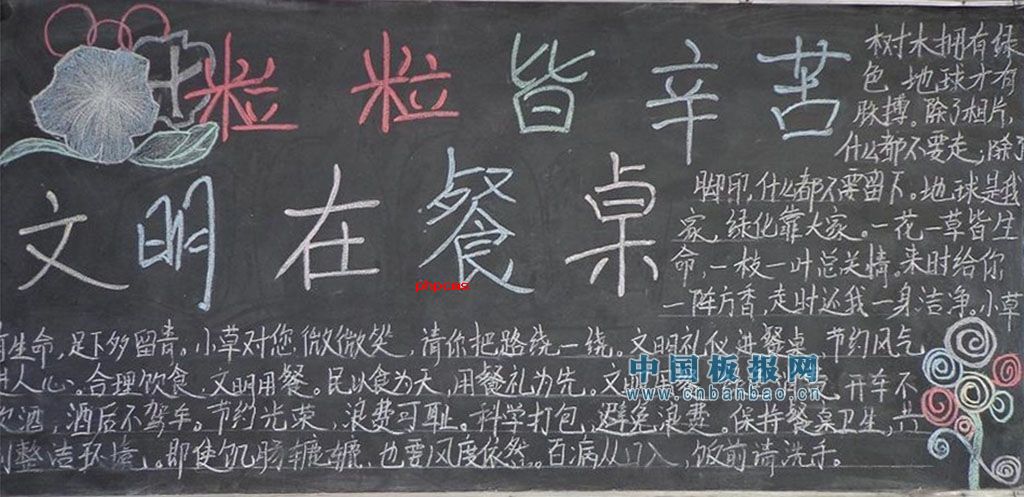 粒粒皆辛苦
文明在餐桌
树木拥有绿
色 地球才有
脉搏。除了相片,
什么都不要走,除了
脚印,什么都不要留下。地球是我
家,绿化靠大家。一花一草皆生
命,一枝一叶总关情。来时给你
一阵方香,走时还我一身洁净。小草
phpcms
有生命,足下多留青。小草对您微微笑,请你把路绕一绕。文明礼仪进餐桌 节约风气
进人心。合理饮食,文明用餐。民以食为天,用餐礼为先。文明 开车不
饮酒,酒后不驾车。节约光荣,浪费可耻。科学打包,避免浪费。保持餐桌卫生,共
创整洁环境。即使饥肠辘辘,也要风度依然。百病从口入,饭前请洗手。
中国板报网
www.cnbanbao.cn